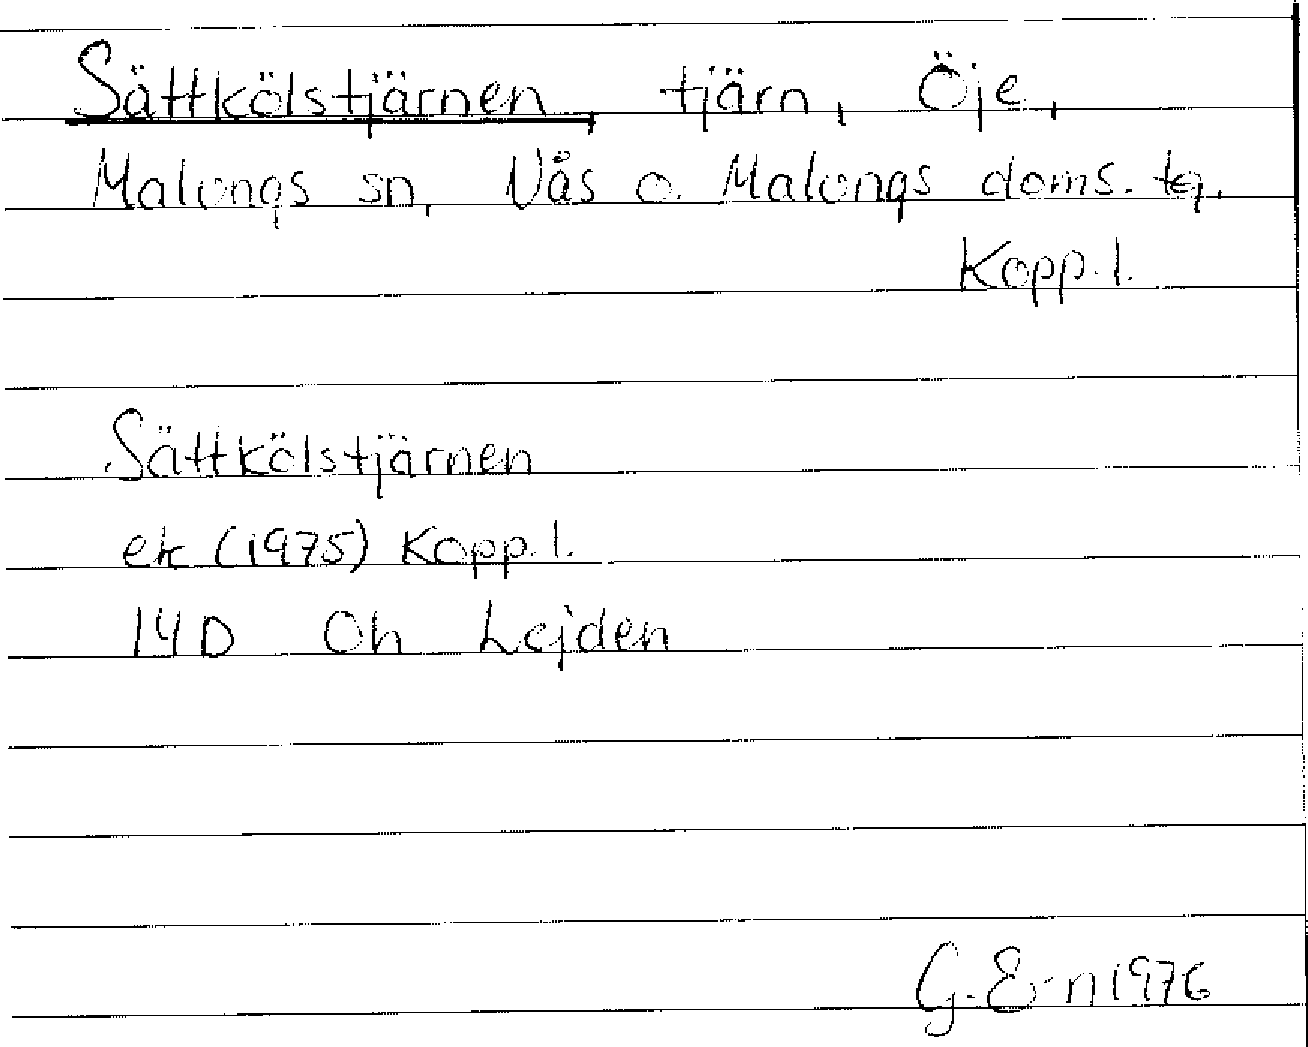 Sättkölstjärnen, tjärn, Öje,
Malungs sn, Nås o. Malungs doms. tg.
Kopp. l.
Sättkölstjärnen
ek (1975) Kopp. l.
14D 0h Lejden
G. E-n 1976